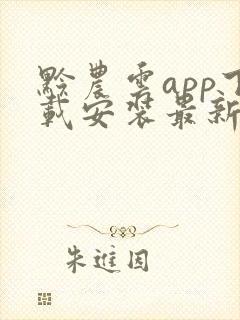 黔農雲app下
載安裝最新
朱進囯